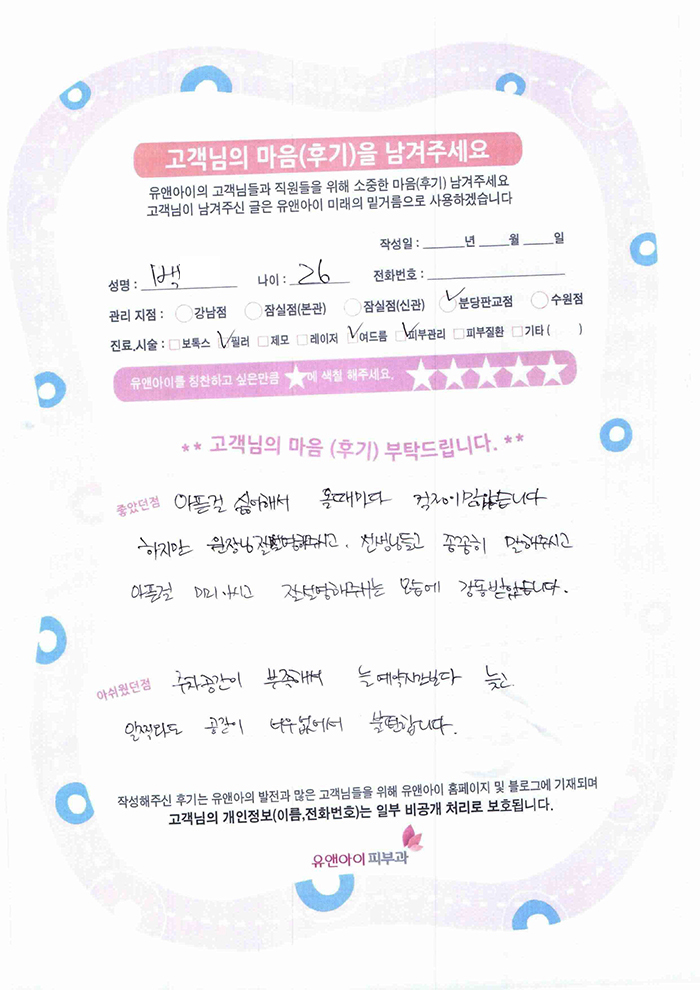 고객님의 마음(후기)을 남겨주세요
유앤아이의 고객님들과 직원들을 위해 소중한 마음(후기) 남겨주세요
고객님이 남겨주신 글은 유앤아이 미래의 밑거름으로 사용하겠습니다
작성일 : ______년 ____월 ____일
성명 : 백 나이 : 26 전화번호 :
관리 지점 : 강남점 잠실점(본관) 잠실점(신관) 분당판교점 수원점
진료.시술 : 보톡스 필러 제모 레이저 여드름 피부관리 피부질환 기타 ( )
유앤아이를 칭찬하고 싶은만큼 ★에 색칠 해주세요. ★★★★★
** 고객님의 마음 (후기) 부탁드립니다. **
좋았던점 아픈걸 싫어해서 올때마다 걱정이많았습니다
하지만 원장님 잘설명해주시고, 선생님들고 종종히 말해주시고
아픈걸 미리 아시고 잘설명해주시는 모습에 감동받았습니다.
아쉬웠던점 주차공간이 부족해서 늘 예약시간보다 늦고.
일찍와도 공간이 너무없어서 불편합니다.
작성해주신 후기는 유앤아의 발전과 많은 고객님들을 위해 유앤아이 홈페이지 및 블로그에 기재되며
고객님의 개인정보(이름,전화번호)는 일부 비공개 처리로 보호됩니다.
유앤아이피부과